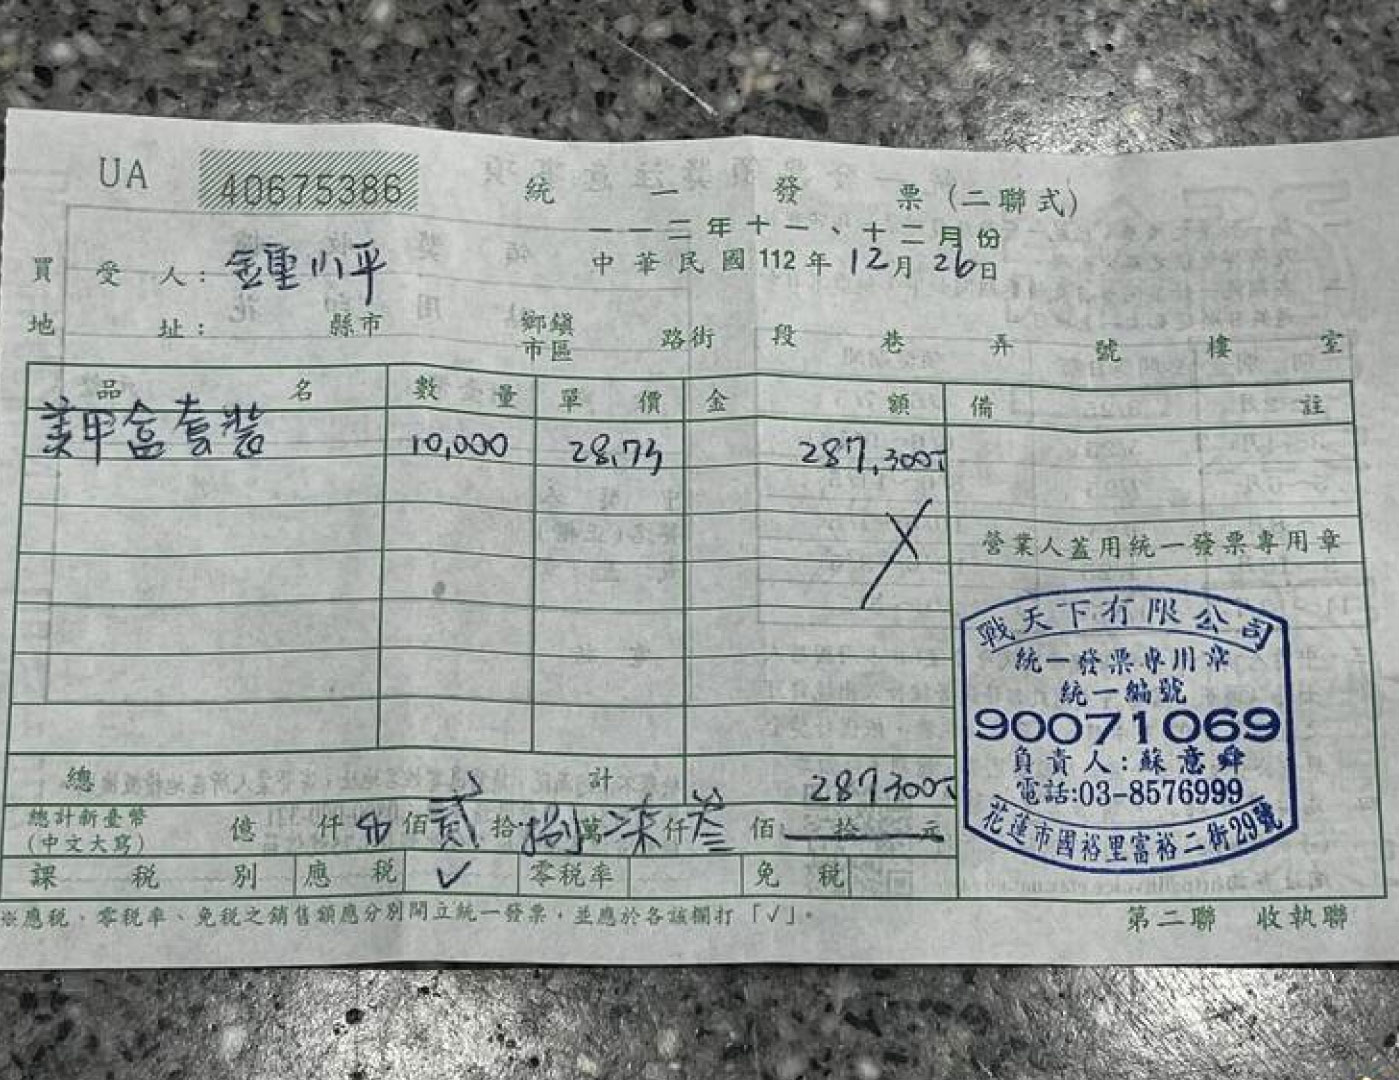 UA 40675386
統一發票(二聯式)
一一二年十一、十二月份
中華民國112年12月26日
買受人:
小平
地址: 縣市 鄉鎮市區 路街 段 巷 弄 號 樓 室
品名 數量 單價 金額 備註
美甲盒套裝 10,000 28.73 287,300
營業人蓋用統一發票專用章
戰天下有限公司
統一發票專用章
統一編號
90071069
負責人:蘇意舜
電話:03-8576999
花蓮市國裕里富裕二街29號
總計 287300
總計新臺幣
(中文大寫)
億 仟 佰 貳 拾 捌 萬 柒 仟 叁 佰 拾 元
課稅別 應稅 ✓ 零稅率 免稅
※應稅、零稅率、免稅之銷售額應分別開立統一發票,並應於各該欄打「✓」。
第二聯 收執聯